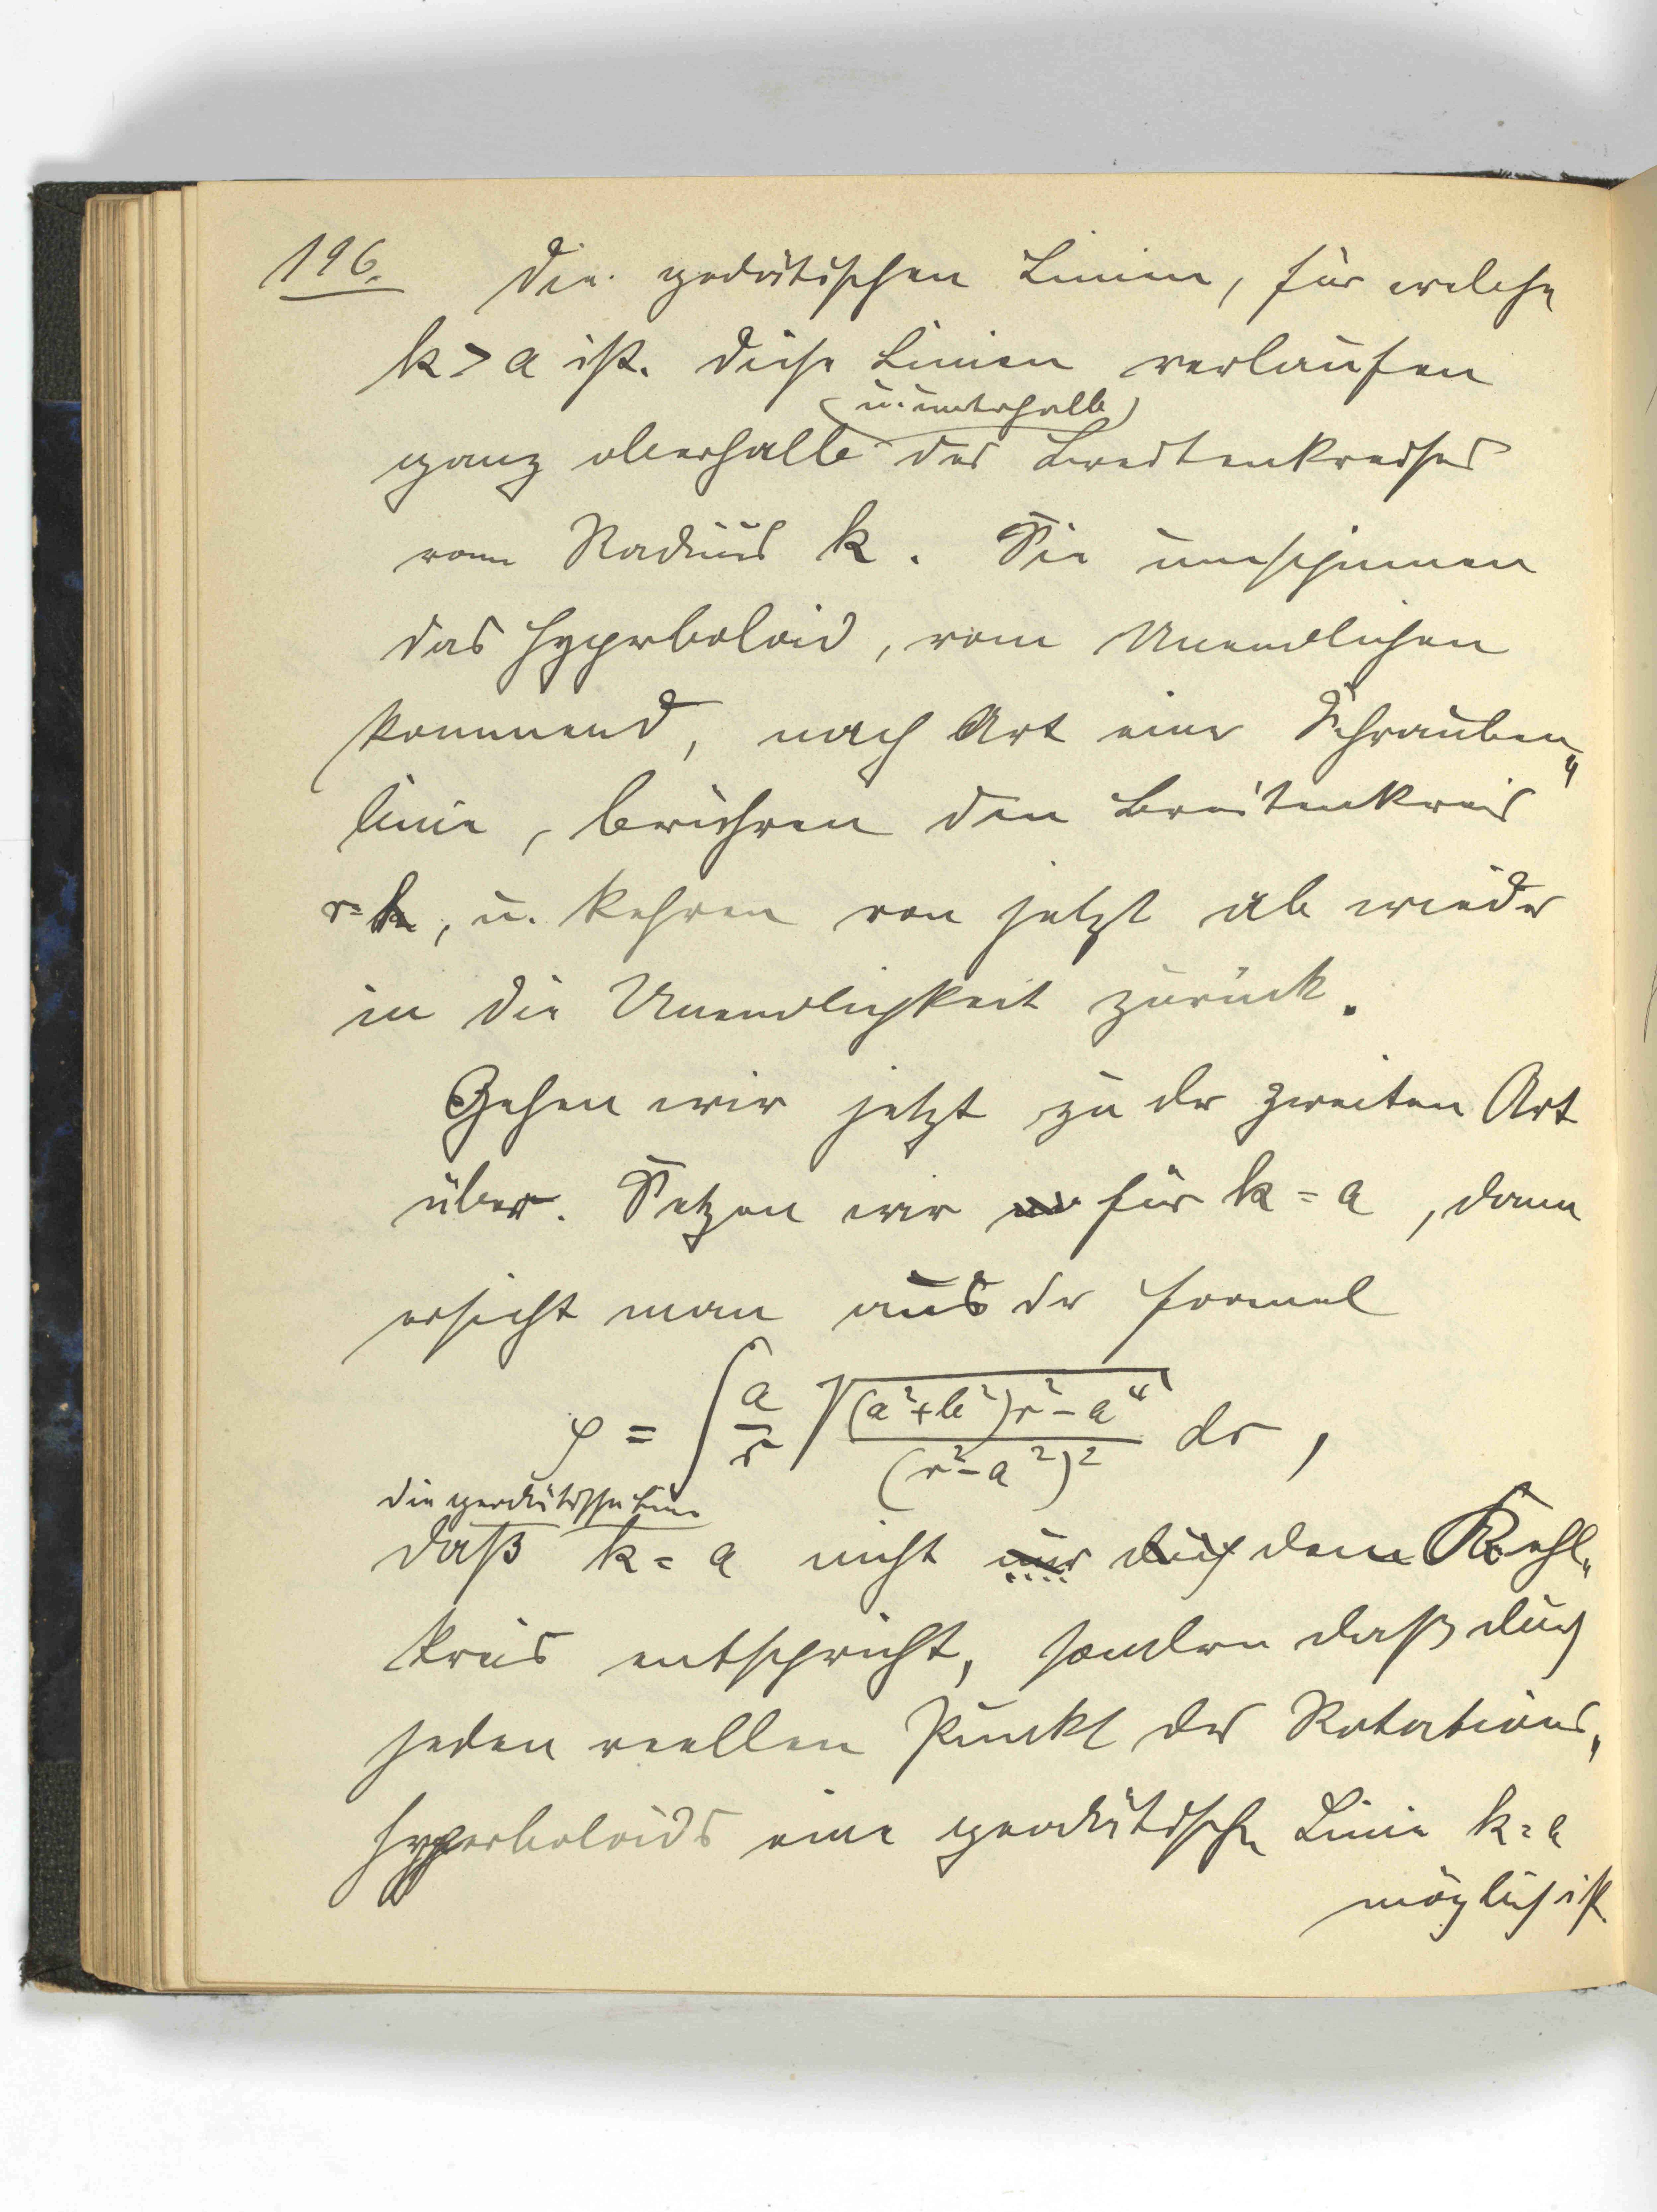 196. Die geodätischen Linien, für welche
k > a ist. Diese Linien verlaufen
(u. unterhalb)
ganz oberhalb des Breitenkreises
vom Radius k. Sie umspinnen
das Hyperboloid, vom Unendlichen
kommend, nach Art einer Schrauben„
linie, berühren den Breitenkreis
r=k, u. kehren von jetzt ab wieder
in die Unendlichkeit zurück.
Gehen wir jetzt zu der zweiten Art
über. Setzen wir für k = a, dann
ersieht man aus der Formel
φ = ∫ a/r √((a²+b²)r²-a⁴)/(r²-a²)² dr,
die geodätische Linie
daß k = a nicht nur dem Kehl„
kreis entspricht, sondern daß durch
jeden reellen Punkt des Rotations„
hyperboloids eine geodätische Linie k=a
möglich ist.